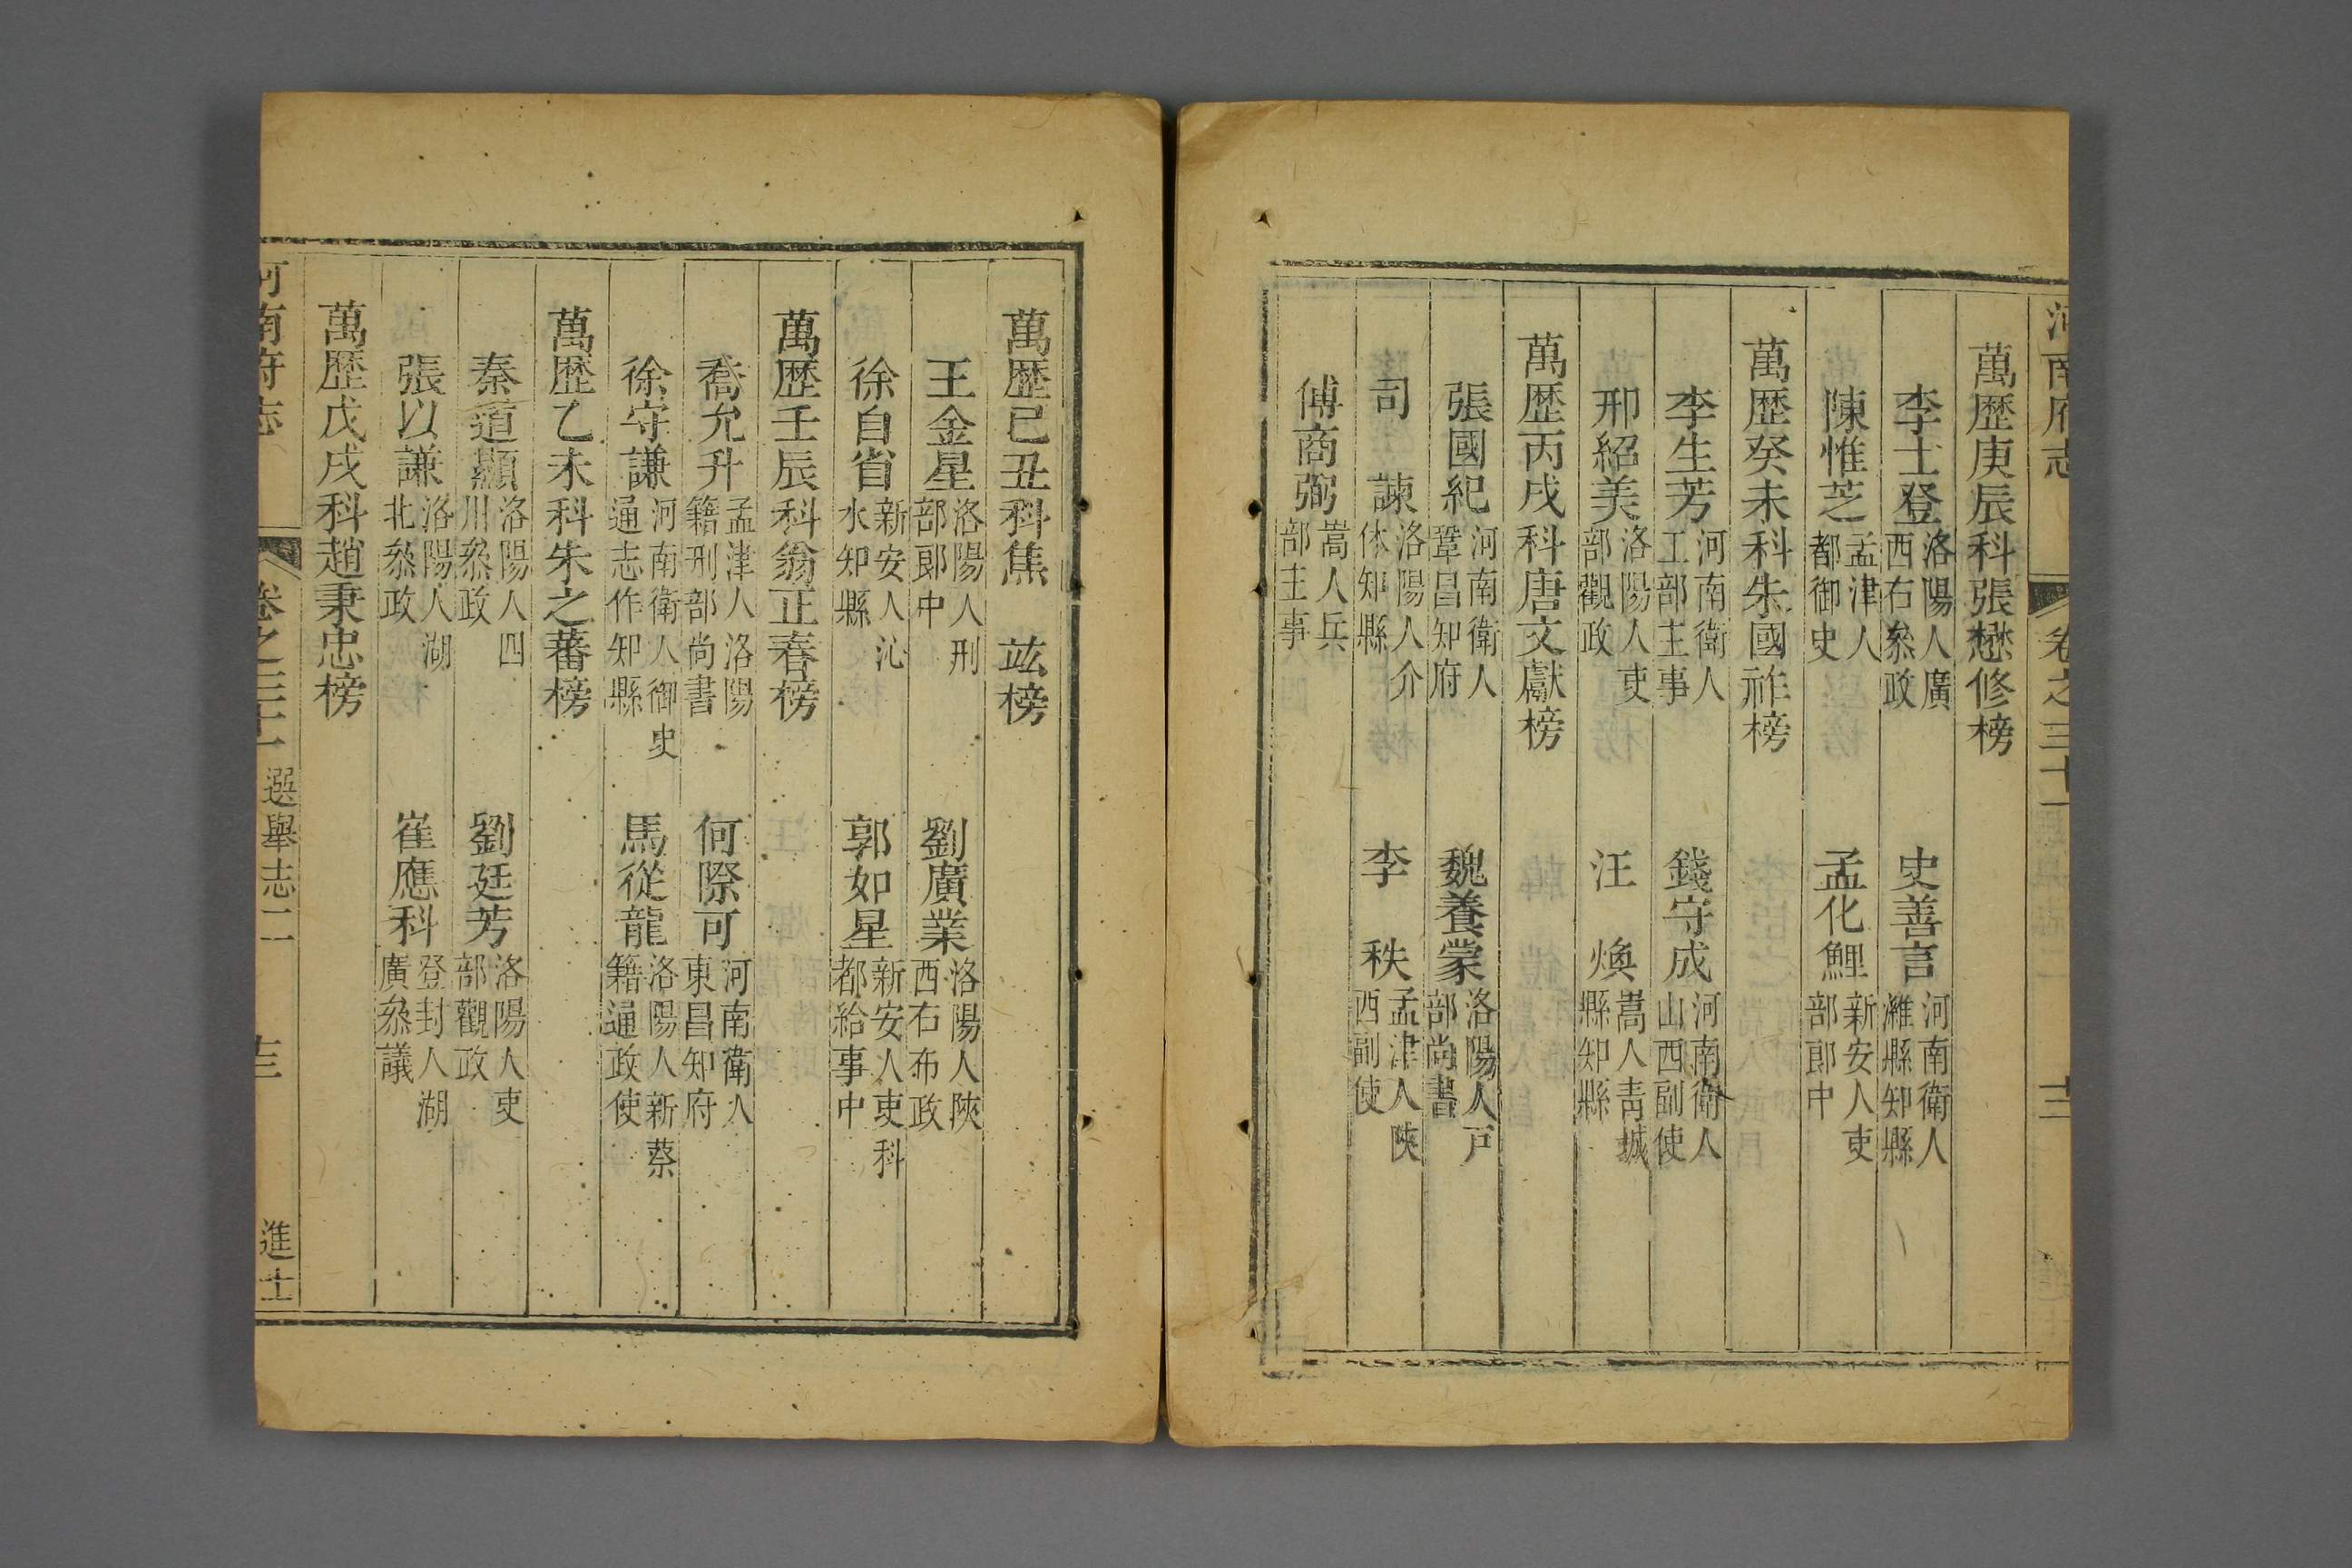 河南府志 卷之三十一 十二
萬歷庚辰科張懋修榜
李士登 洛陽人廣西右叅政 史善言 河南衛人濰縣知縣
陳惟芝 孟津人都御史 孟化鯉 新安人吏部郎中
萬歷癸未科朱國祚榜
李生芳 河南衛人工部主事 錢守成 河南衛人山西副使
邢紹美 洛陽人吏部觀政 汪煥 嵩人青城縣知縣
萬歷丙戌科唐文獻榜
張國紀 河南衛人鞏昌知府 魏養蒙 洛陽人戸部尚書
司諫 洛陽人介休知縣 李秩 孟津人陝西副使
傅商弼 嵩人兵部主事
萬歷已丑科焦竑榜
王金星 洛陽人刑部郎中 劉廣業 洛陽人陝西右布政
徐自省 新安人沁水知縣 郭如星 新安人吏科都給事中
萬歷壬辰科翁正春榜
喬允升 孟津人洛陽籍刑部尚書 何際可 河南衛人東昌知府
徐守謙 河南衛人御史通志作知縣 馬從龍 洛陽人新蔡籍通政使
萬歷乙未科朱之蕃榜
秦道顯 洛陽人四川叅政 劉廷芳 洛陽人吏部觀政
張以謙 洛陽人湖北叅政 崔應科 登封人湖廣叅議
萬歷戊戌科趙秉忠榜
河南府志 卷之三十一 選舉志二 十三 進士